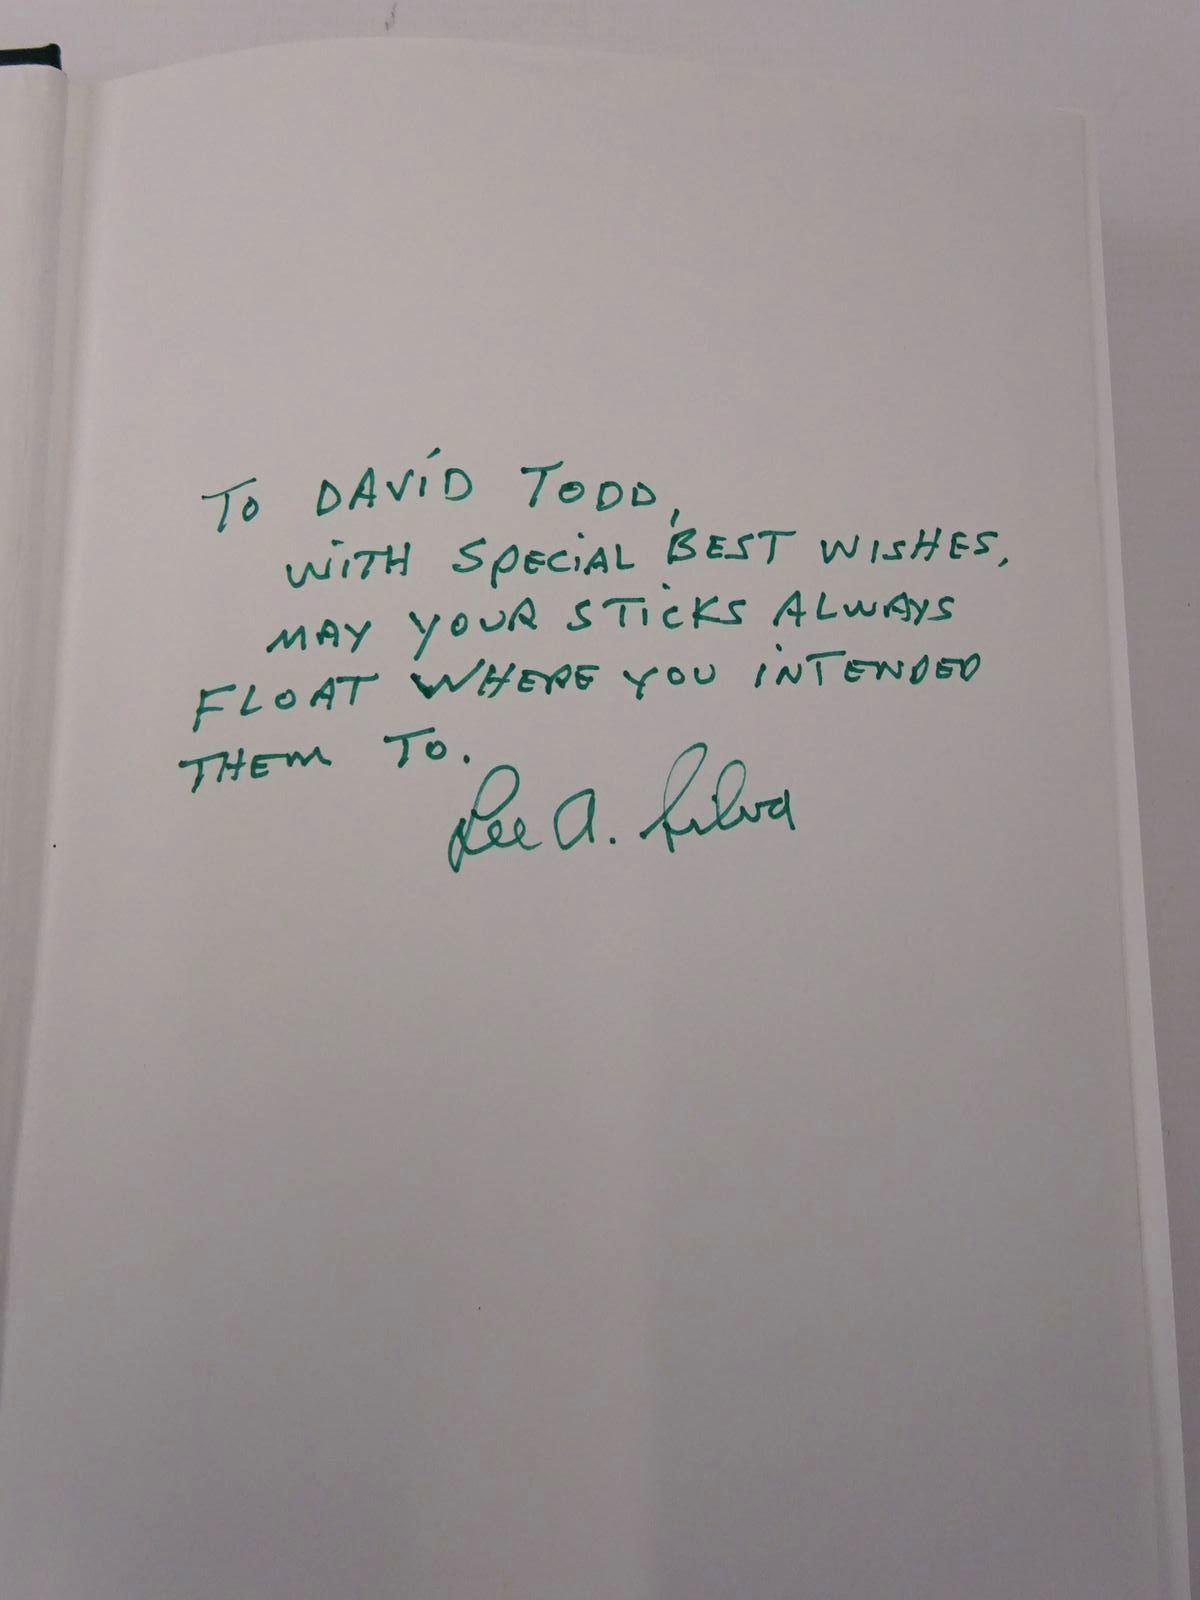 To DAViD TODD,
WiTH SPECiAL BEST WISHES,
MAY YOUR STiCKS ALWAYS
FLOAT WHERE YOU iNTENDED
THEM To.
Lee A. Silva